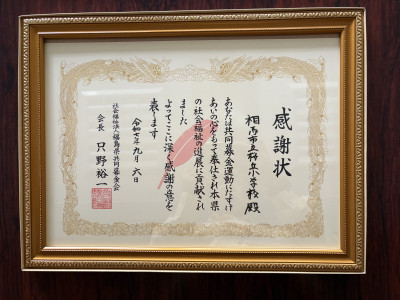 感謝状
相馬市立桜丘小学校殿
あなたは共同募金運動にたすけ
あいの心をもって奉仕され本県
の社会福祉の進展に貢献され
ました
よってここに深く感謝の意を
表します
令和七年九月六日
社会福祉法人福島県共同募金会
会長 只野裕一